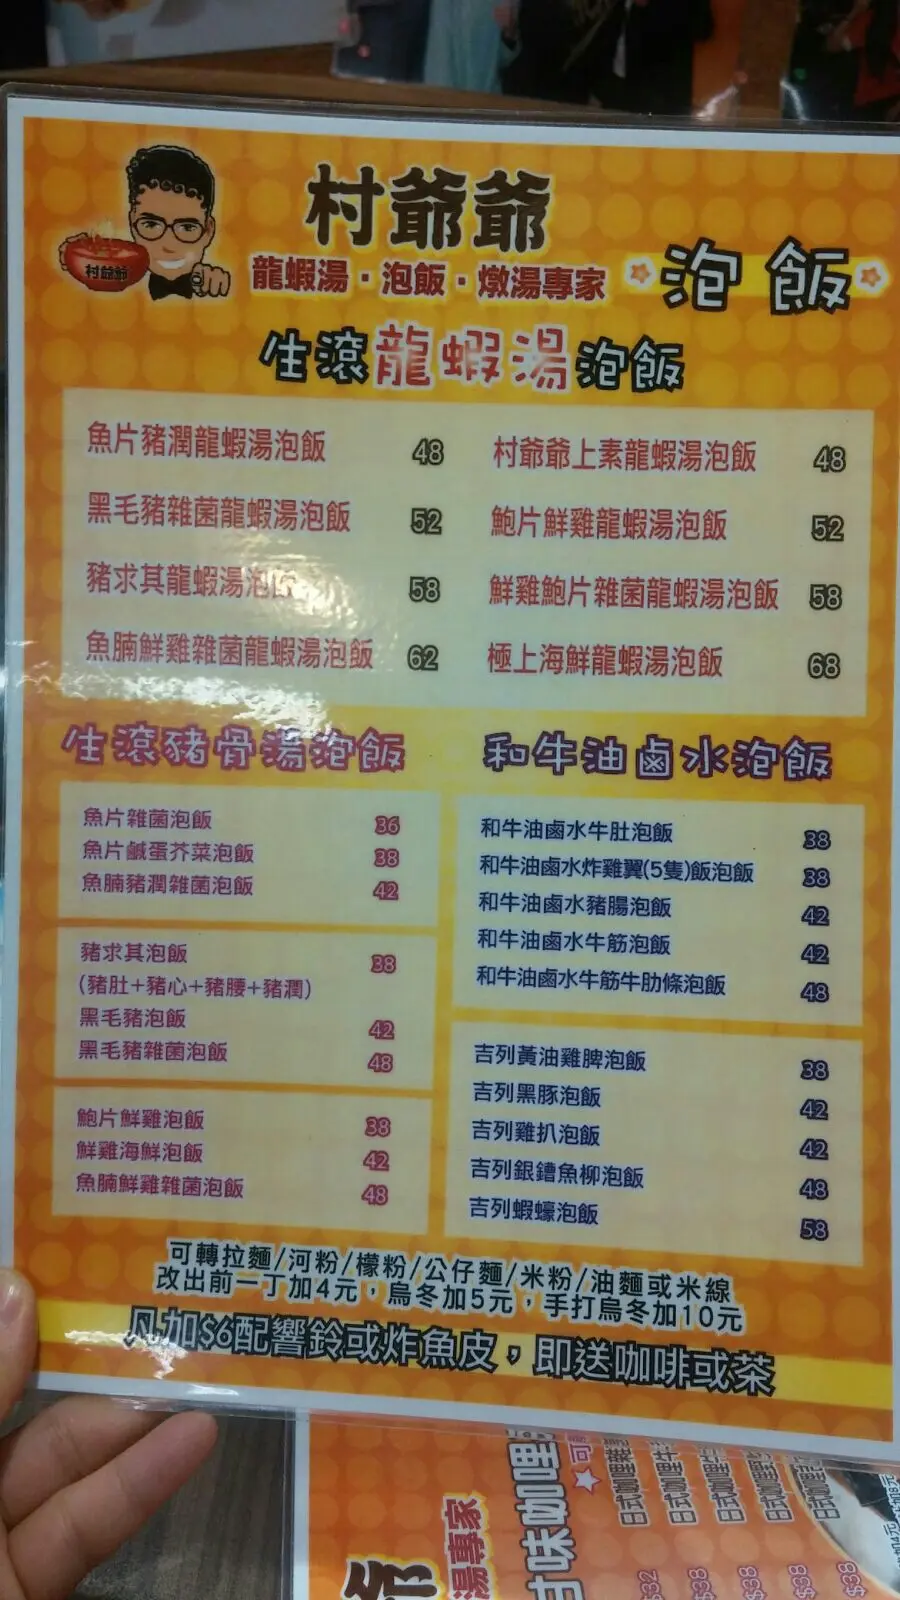 村爺爺
村爺爺
龍蝦湯・泡飯・燉湯專家
泡飯
生滾龍蝦湯泡飯
魚片豬潤龍蝦湯泡飯 48
黑毛豬雜菌龍蝦湯泡飯 52
豬求其龍蝦湯泡飯 58
魚腩鮮雞雜菌龍蝦湯泡飯 62
村爺爺上素龍蝦湯泡飯 48
鮑片鮮雞龍蝦湯泡飯 52
鮮雞鮑片雜菌龍蝦湯泡飯 58
極上海鮮龍蝦湯泡飯 68
生滾豬骨湯泡飯
魚片雜菌泡飯 36
魚片鹹蛋芥菜泡飯 38
魚腩豬潤雜菌泡飯 42
豬求其泡飯 38
(豬肚+豬心+豬腰+豬潤)
黑毛豬泡飯 42
黑毛豬雜菌泡飯 48
鮑片鮮雞泡飯 38
鮮雞海鮮泡飯 42
魚腩鮮雞雜菌泡飯 48
和牛油鹵水泡飯
和牛油鹵水牛肚泡飯 38
和牛油鹵水炸雞翼(5隻)飯泡飯 38
和牛油鹵水豬腸泡飯 42
和牛油鹵水牛筋泡飯 42
和牛油鹵水牛筋牛肋條泡飯 48
吉列黃油雞脾泡飯 38
吉列黑豚泡飯 42
吉列雞扒泡飯 42
吉列銀鱈魚柳泡飯 48
吉列蝦蠔泡飯 58
可轉拉麵/河粉/檬粉/公仔麵/米粉/油麵或米線
改出前一丁加4元，烏冬加5元，手打烏冬加10元
凡加$6配響鈴或炸魚皮，即送咖啡或茶
爺
湯專家
甘味咖哩
可
日式咖哩雞
日式咖哩牛
日式咖哩
日式咖哩
日式咖哩
$32
$38
$38
$38
$38